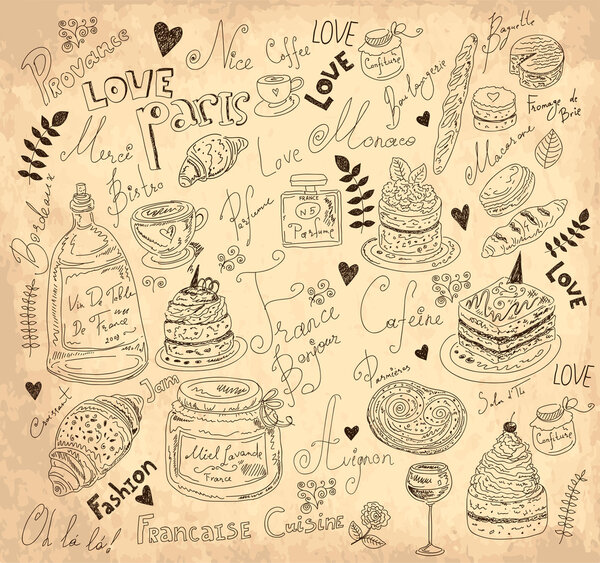 Provance
Nice
Coffee
LOVE
Confiture
Baguette
LOVE
Paris
LOVE
Boulangerie
Fromage de
Brie
Merci
Love Monaco
Macarone
Bistro
Bordeaux
Parfume
FRANCE
N5
Parfume
Vin De Table
De France
France
Bonjour
Cafeine
LOVE
Jam
Croissant
Miel Lavande
France
Avignon
LOVE
Confiture
Fashion
Oh là là!
Francaise Cuisine